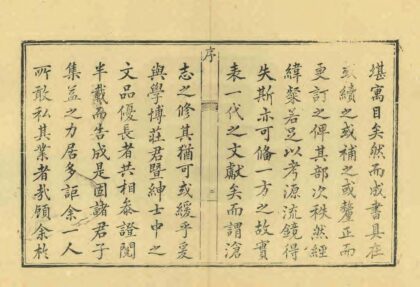 堪寓目矣然而成書具在
或續之或補之或釐正而
更訂之俾其部次秩然經
緯粲若足以考源流鏡得
失斯亦可備一方之故實
表一代之文獻矣而謂滄
序
志之修其猶可或緩乎爰
與學博莊君暨紳士中之
文品優長者共相叅證閱
半載而告成是固諸君子
集益之力居多詎余一人
所敢私其業者哉顧余於